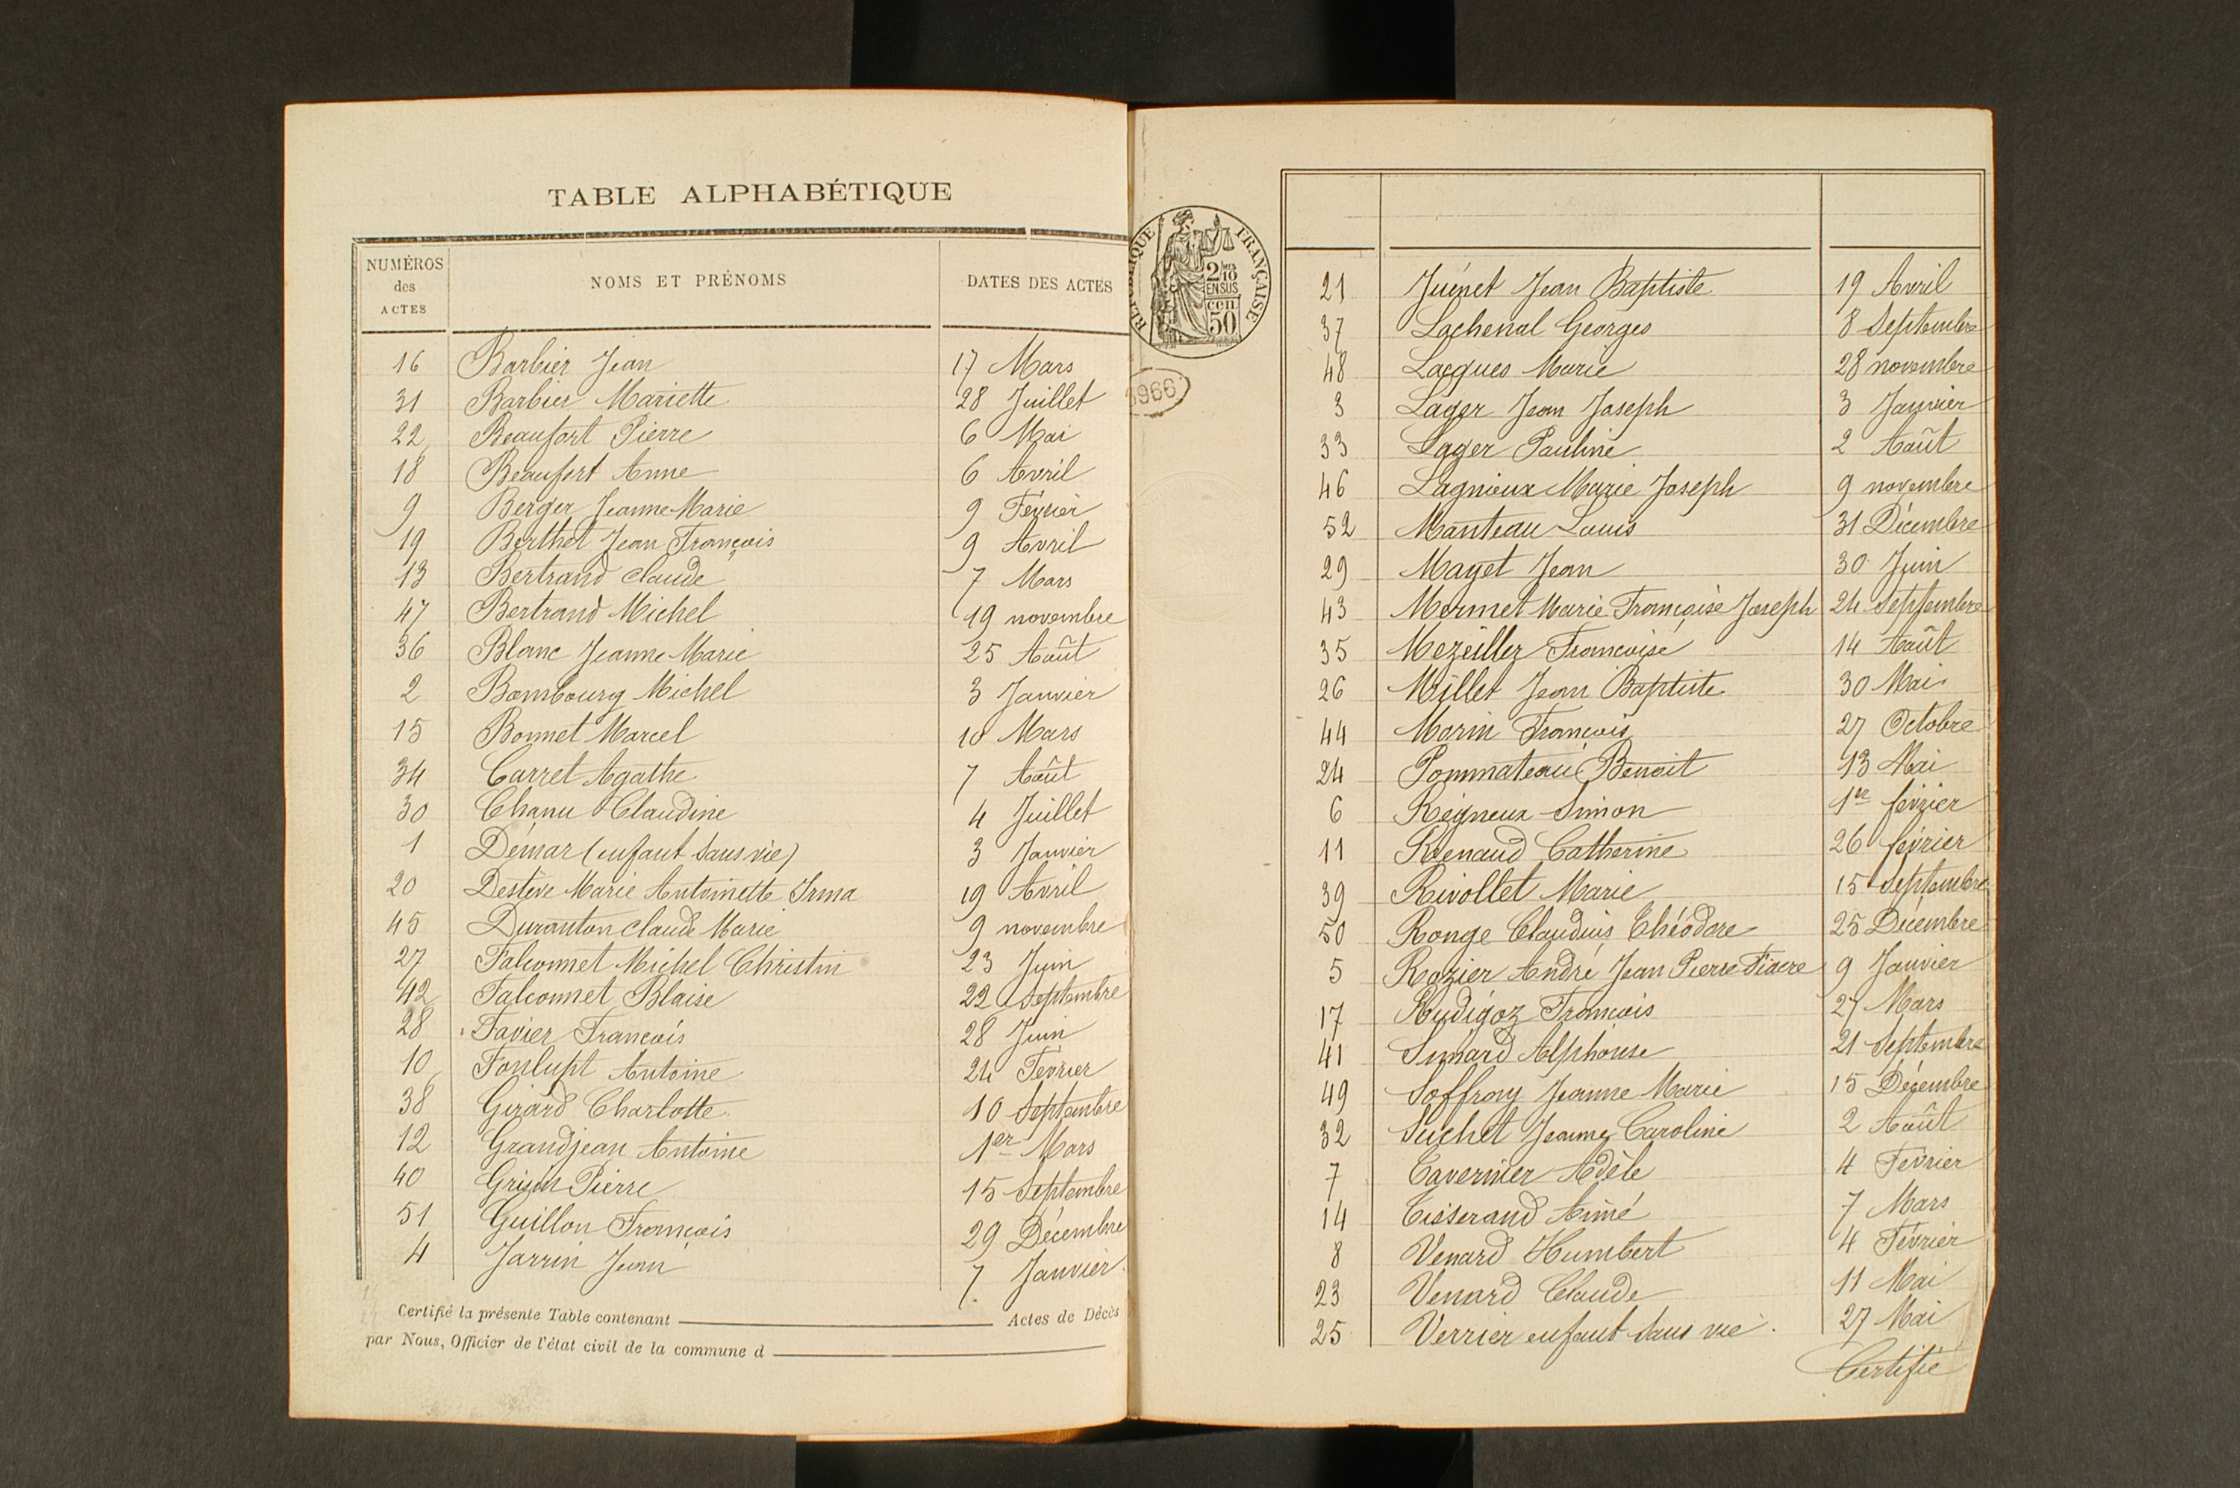 TABLE ALPHABÉTIQUE
NUMÉROS des ACTES NOMS ET PRÉNOMS DATES DES ACTES
16 Barbier Jean 17 Mars
31 Barbier Mariette 28 Juillet
22 Beaufort Pierre 6 Mai
18 Beaufort Anne 6 Avril
9 Berger Jeanne Marie 9 Février
19 Berthet Jean François 9 Avril
13 Bertrand Claude 7 Mars
47 Bertrand Michel 19 novembre
36 Blanc Jeanne Marie 25 Août
2 Bombourg Michel 3 Janvier
15 Bonnet Marcel 10 Mars
34 Carret Agathe 7 Août
30 Chanu Claudine 4 Juillet
1 Démar (enfant sans vie) 3 Janvier
20 Destève Marie Antoinette Irma 19 Avril
45 Duranton Claude Marie 9 novembre
27 Falconnet Michel Christin 23 Juin
42 Falconnet Blaise 22 Septembre
28 Favier François 28 Juin
10 Fonlupt Antoine 24 Février
38 Girard Charlotte 10 Septembre
12 Grandjean Antoine 1er Mars
40 Pierre 15 Septembre
51 Guillon François 29 Décembre
4 Jarrin Jean 7 Janvier
Certifié la présente Table contenant Actes de Décès
par Nous, Officier de l'état civil de la commune d
RÉPUBLIQUE FRANÇAISE
2/10 EN SUS
50 cen
21 Juénet Jean Baptiste 19 Avril
37 Lachenal Georges 8 Septembre
48 Lacques Marie 28 novembre
3 Lager Jean Joseph 3 Janvier
33 Lager Pauline 2 Août
46 Lagnieux Marie Joseph 9 novembre
52 Manteau Louis 31 Décembre
29 Mayet Jean 30 Juin
43 Mermet Marie Françoise Joseph 24 Septembre
35 Mezeiller Françoise 14 Août
26 Millet Jean Baptiste 30 Mai
44 Morin François 27 Octobre
24 Pommateau Benoit 13 Mai
6 Régneux Simon 1er février
11 Renaud Catherine 26 février
39 Rivollet Marie 15 Septembre
50 Ronge Claudius Théodore 25 Décembre
5 Rozier André Jean Pierre Fiacre 9 Janvier
17 Rudigoz François 27 Mars
41 Simard Alphonse 21 Septembre
49 Soffroy Jeanne Marie 15 Décembre
32 Suchet Jeanne Caroline 2 Août
7 Tavernier Adèle 4 Février
14 Tisserand Aimé 7 Mars
8 Venard Humbert 4 Février
23 Venard Claude 11 Mai
25 Verrier enfant sans vie. 27 Mai
Certifié